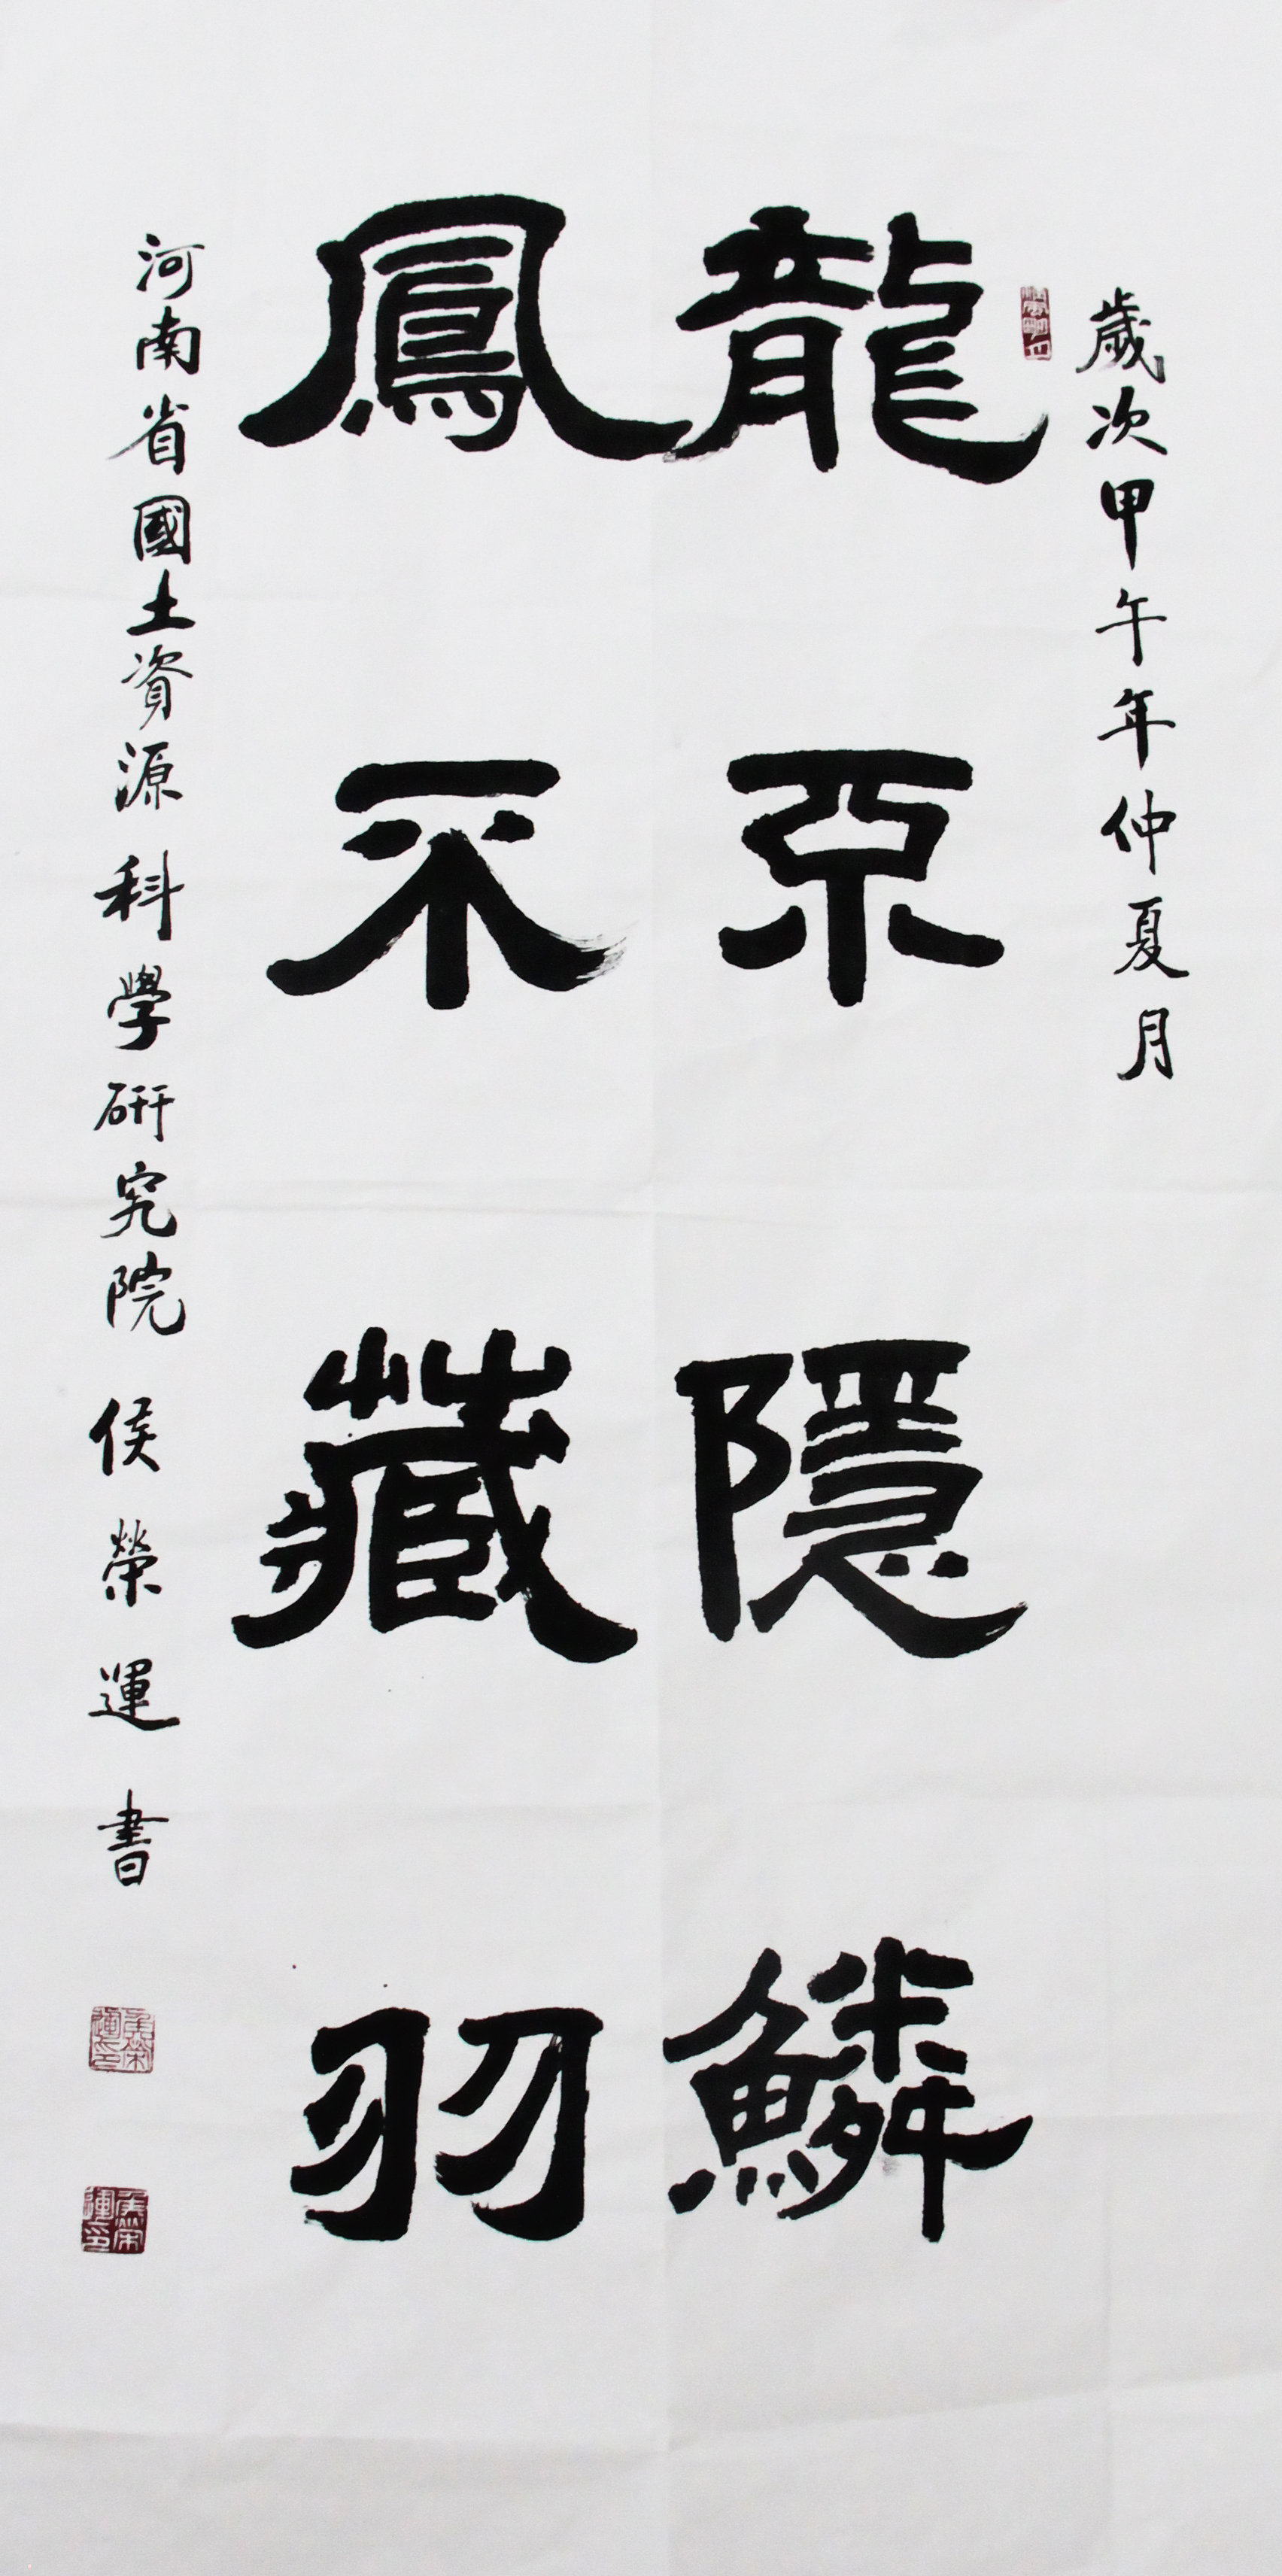 歲次甲午年仲夏月
龍不隱鱗
鳳不藏羽
河南省國土資源科學研究院侯榮運書
侯榮運印
侯榮運印